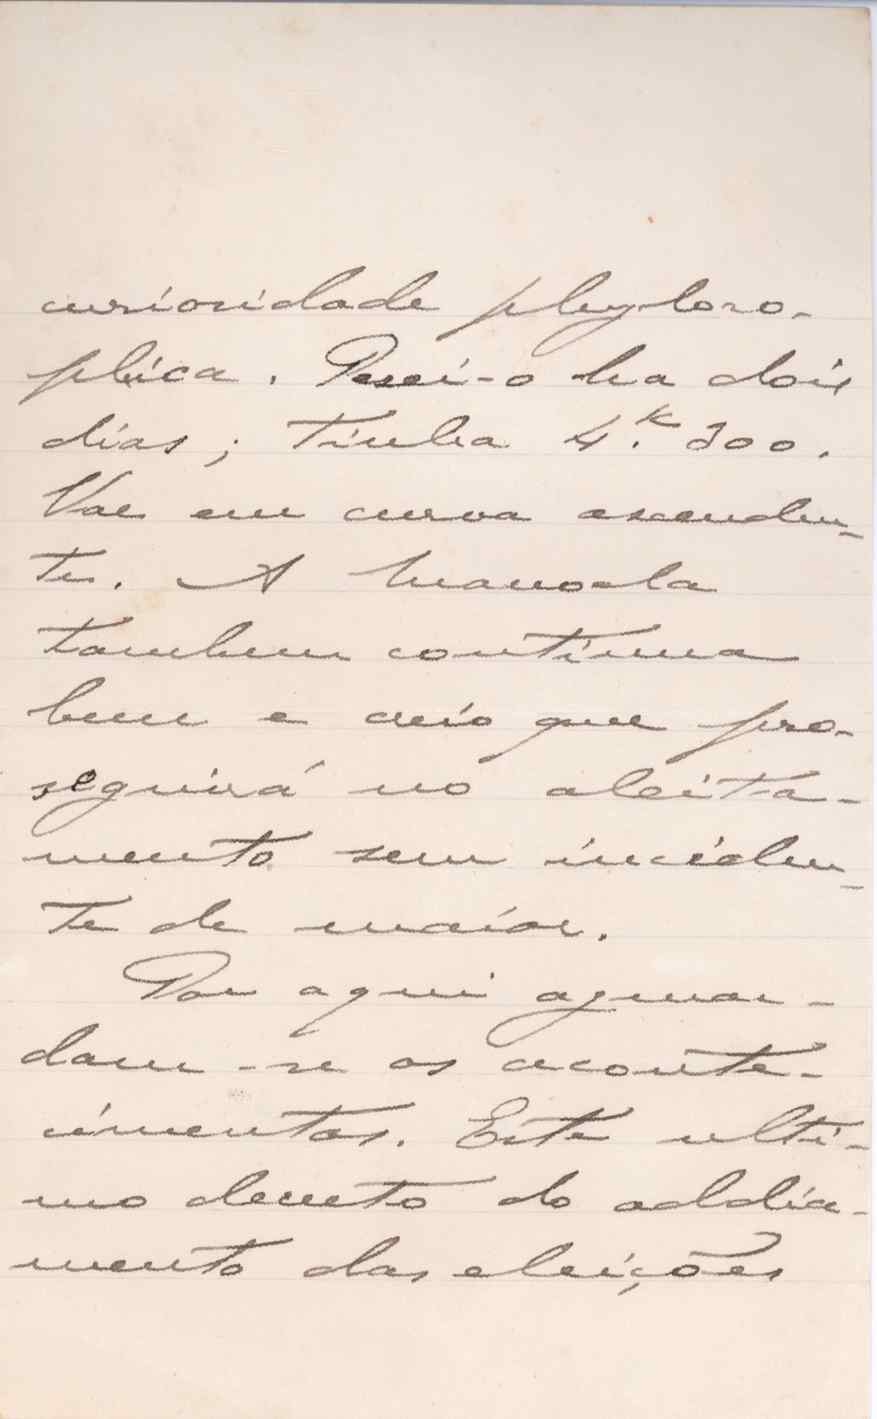 curiosidade phyloso-
phica. Pesei-o ha dois
dias; tinha 4.k 300.
Vae em curva ascenden-
te. A Manoela
tambem continua
bem e creio que pro-
seguirá no aleita-
mento sem inciden-
te de maior.
Por aqui aguar-
dam-se os aconte-
cimentos. Este ulti-
mo decreto do addia-
mento das eleições